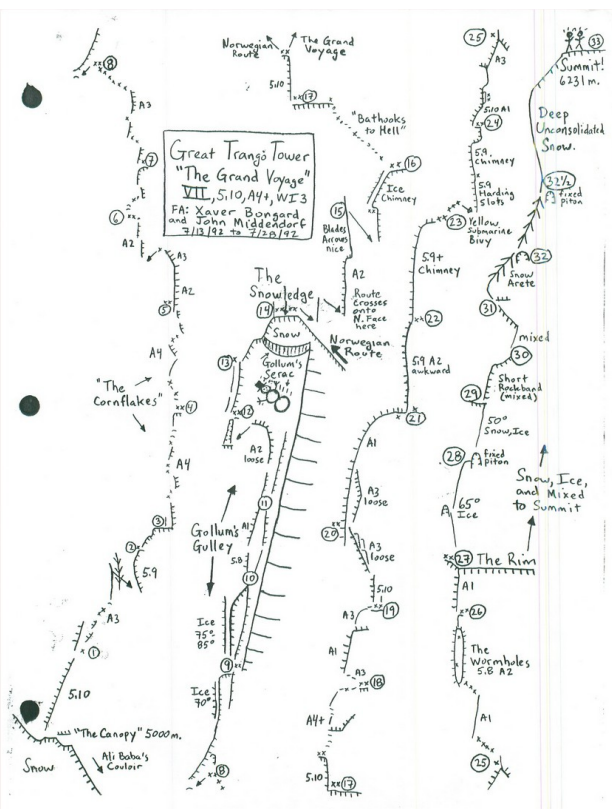 Great Trango Tower
"The Grand Voyage"
VII, 5.10, A4+, WI3
FA: Xaver Bongard
and John Middendorf
7/13/92 to 7/28/92
8
A3
7
6
A2
A3
A2
5
A4
"The
Cornflakes"
4
A4
3
2
5.9
A3
1
5.10
"The Canopy" 5000m.
Ali Baba's
Couloir
Snow
Norwegian
Route
The Grand
Voyage
5.10
17
"Bathooks
to Hell"
16
Ice
Chimney
15
Blades
Arrows
nice
A2
Route
Crosses
onto
N. Face
here
The
Snowledge
14
Snow
Norwegian
Route
13
Gollum's
Serac
12
A2
loose
11
A1
Gollum's
Gulley
5.8
10
Ice
75°-
85°
9
Ice
70°
8
23
Yellow
Submarine
Bivy
5.9+
Chimney
22
5.9 A2
awkward
21
A1
A3
loose
20
A3
loose
5.10
19
A3
A1
A3
18
A4+
5.10
17
25
A3
5.10 A1
24
5.9
Chimney
5.9
Harding
Slots
33
Summit!
6231m.
Deep
Unconsolidated
Snow.
32 1/2
fixed
piton
32
Snow
Arete
31
mixed
30
Short
Rockband
(mixed)
29
50°
Snow, Ice
28
fixed
piton
65°
Ice
Snow, Ice,
and Mixed
to Summit
27
The Rim
A1
26
The
Wormholes
5.8 A2
A1
25